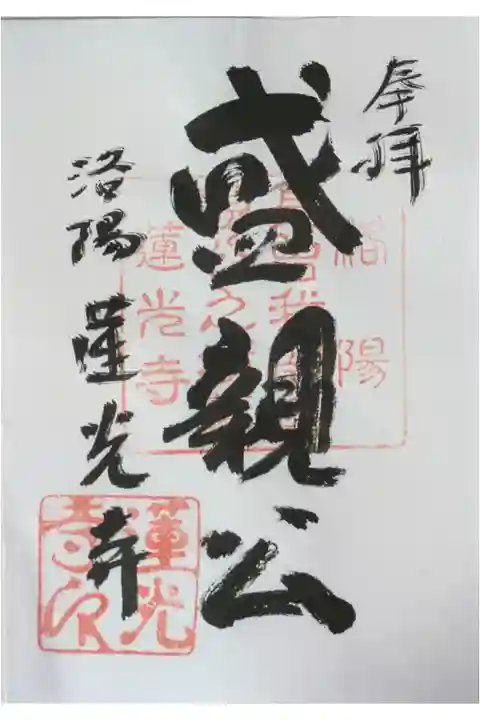 奉拝
盛親公
洛陽蓮光寺
洛陽
蓮光寺
蓮光
寺印